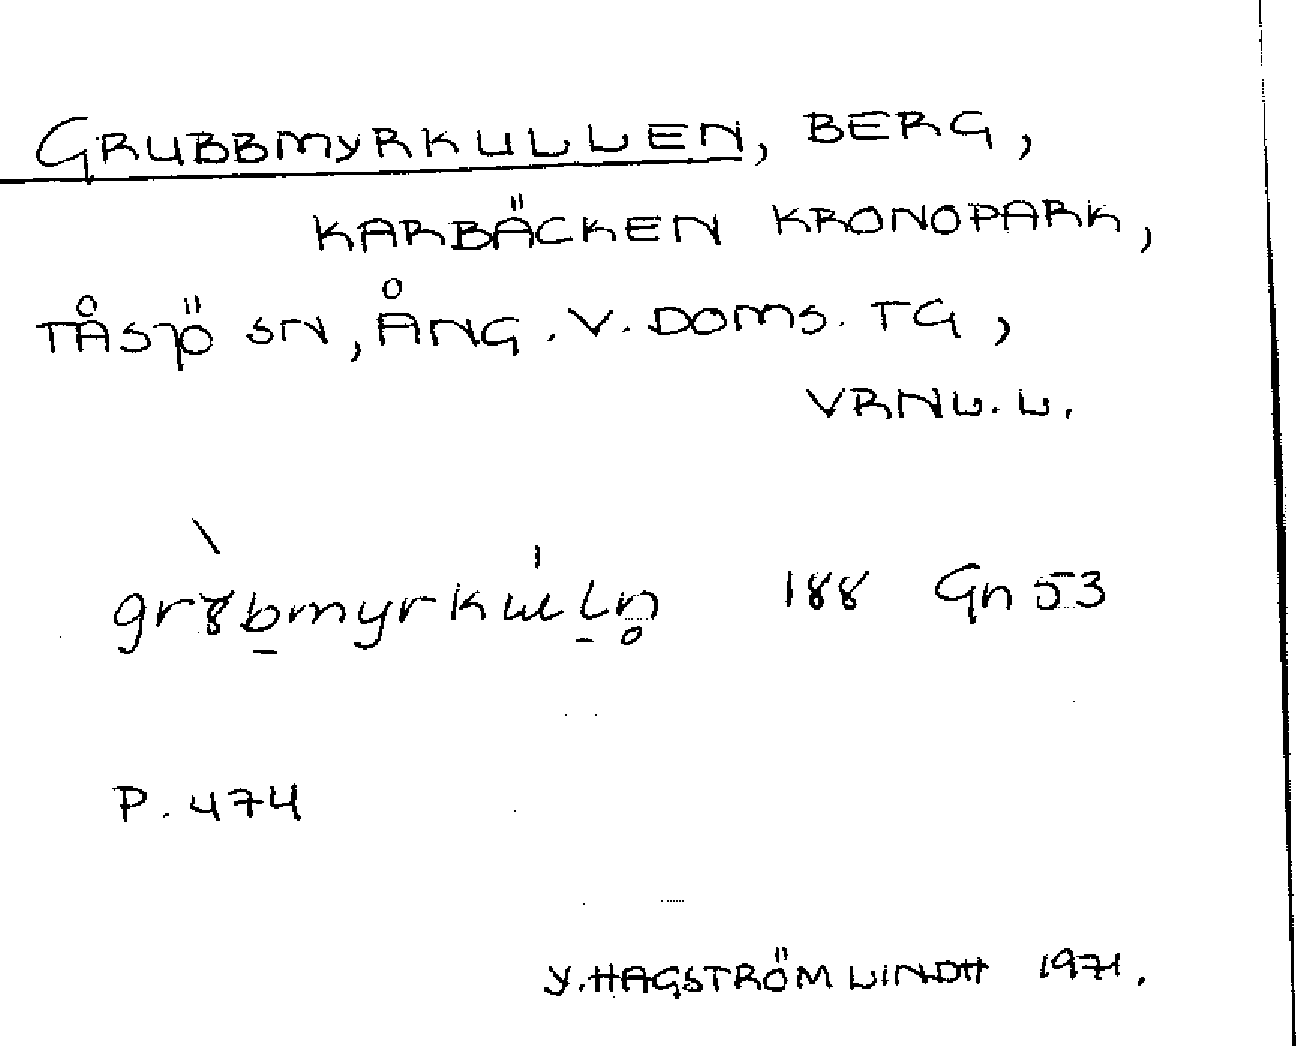 GRUBBMYRKULLEN, BERG,
KARBÄCKEN KRONOPARK,
TÅSJÖ SN, ÅNG. V. DOMS. TG,
VRNL. L.
188 Gn 53
P. 474
Y. HAGSTRÖM LINDH 1971.